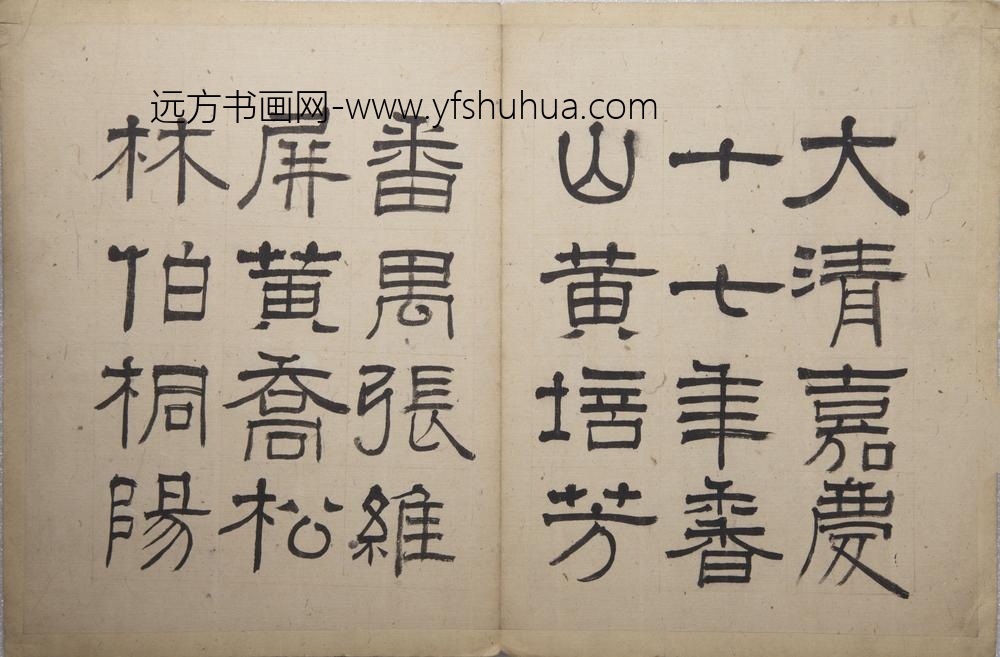 远方书画网-www.yfshuhua.com
大清嘉慶
十七年香
山黄培芳
番禺張維
屏黄喬松
林伯桐陽